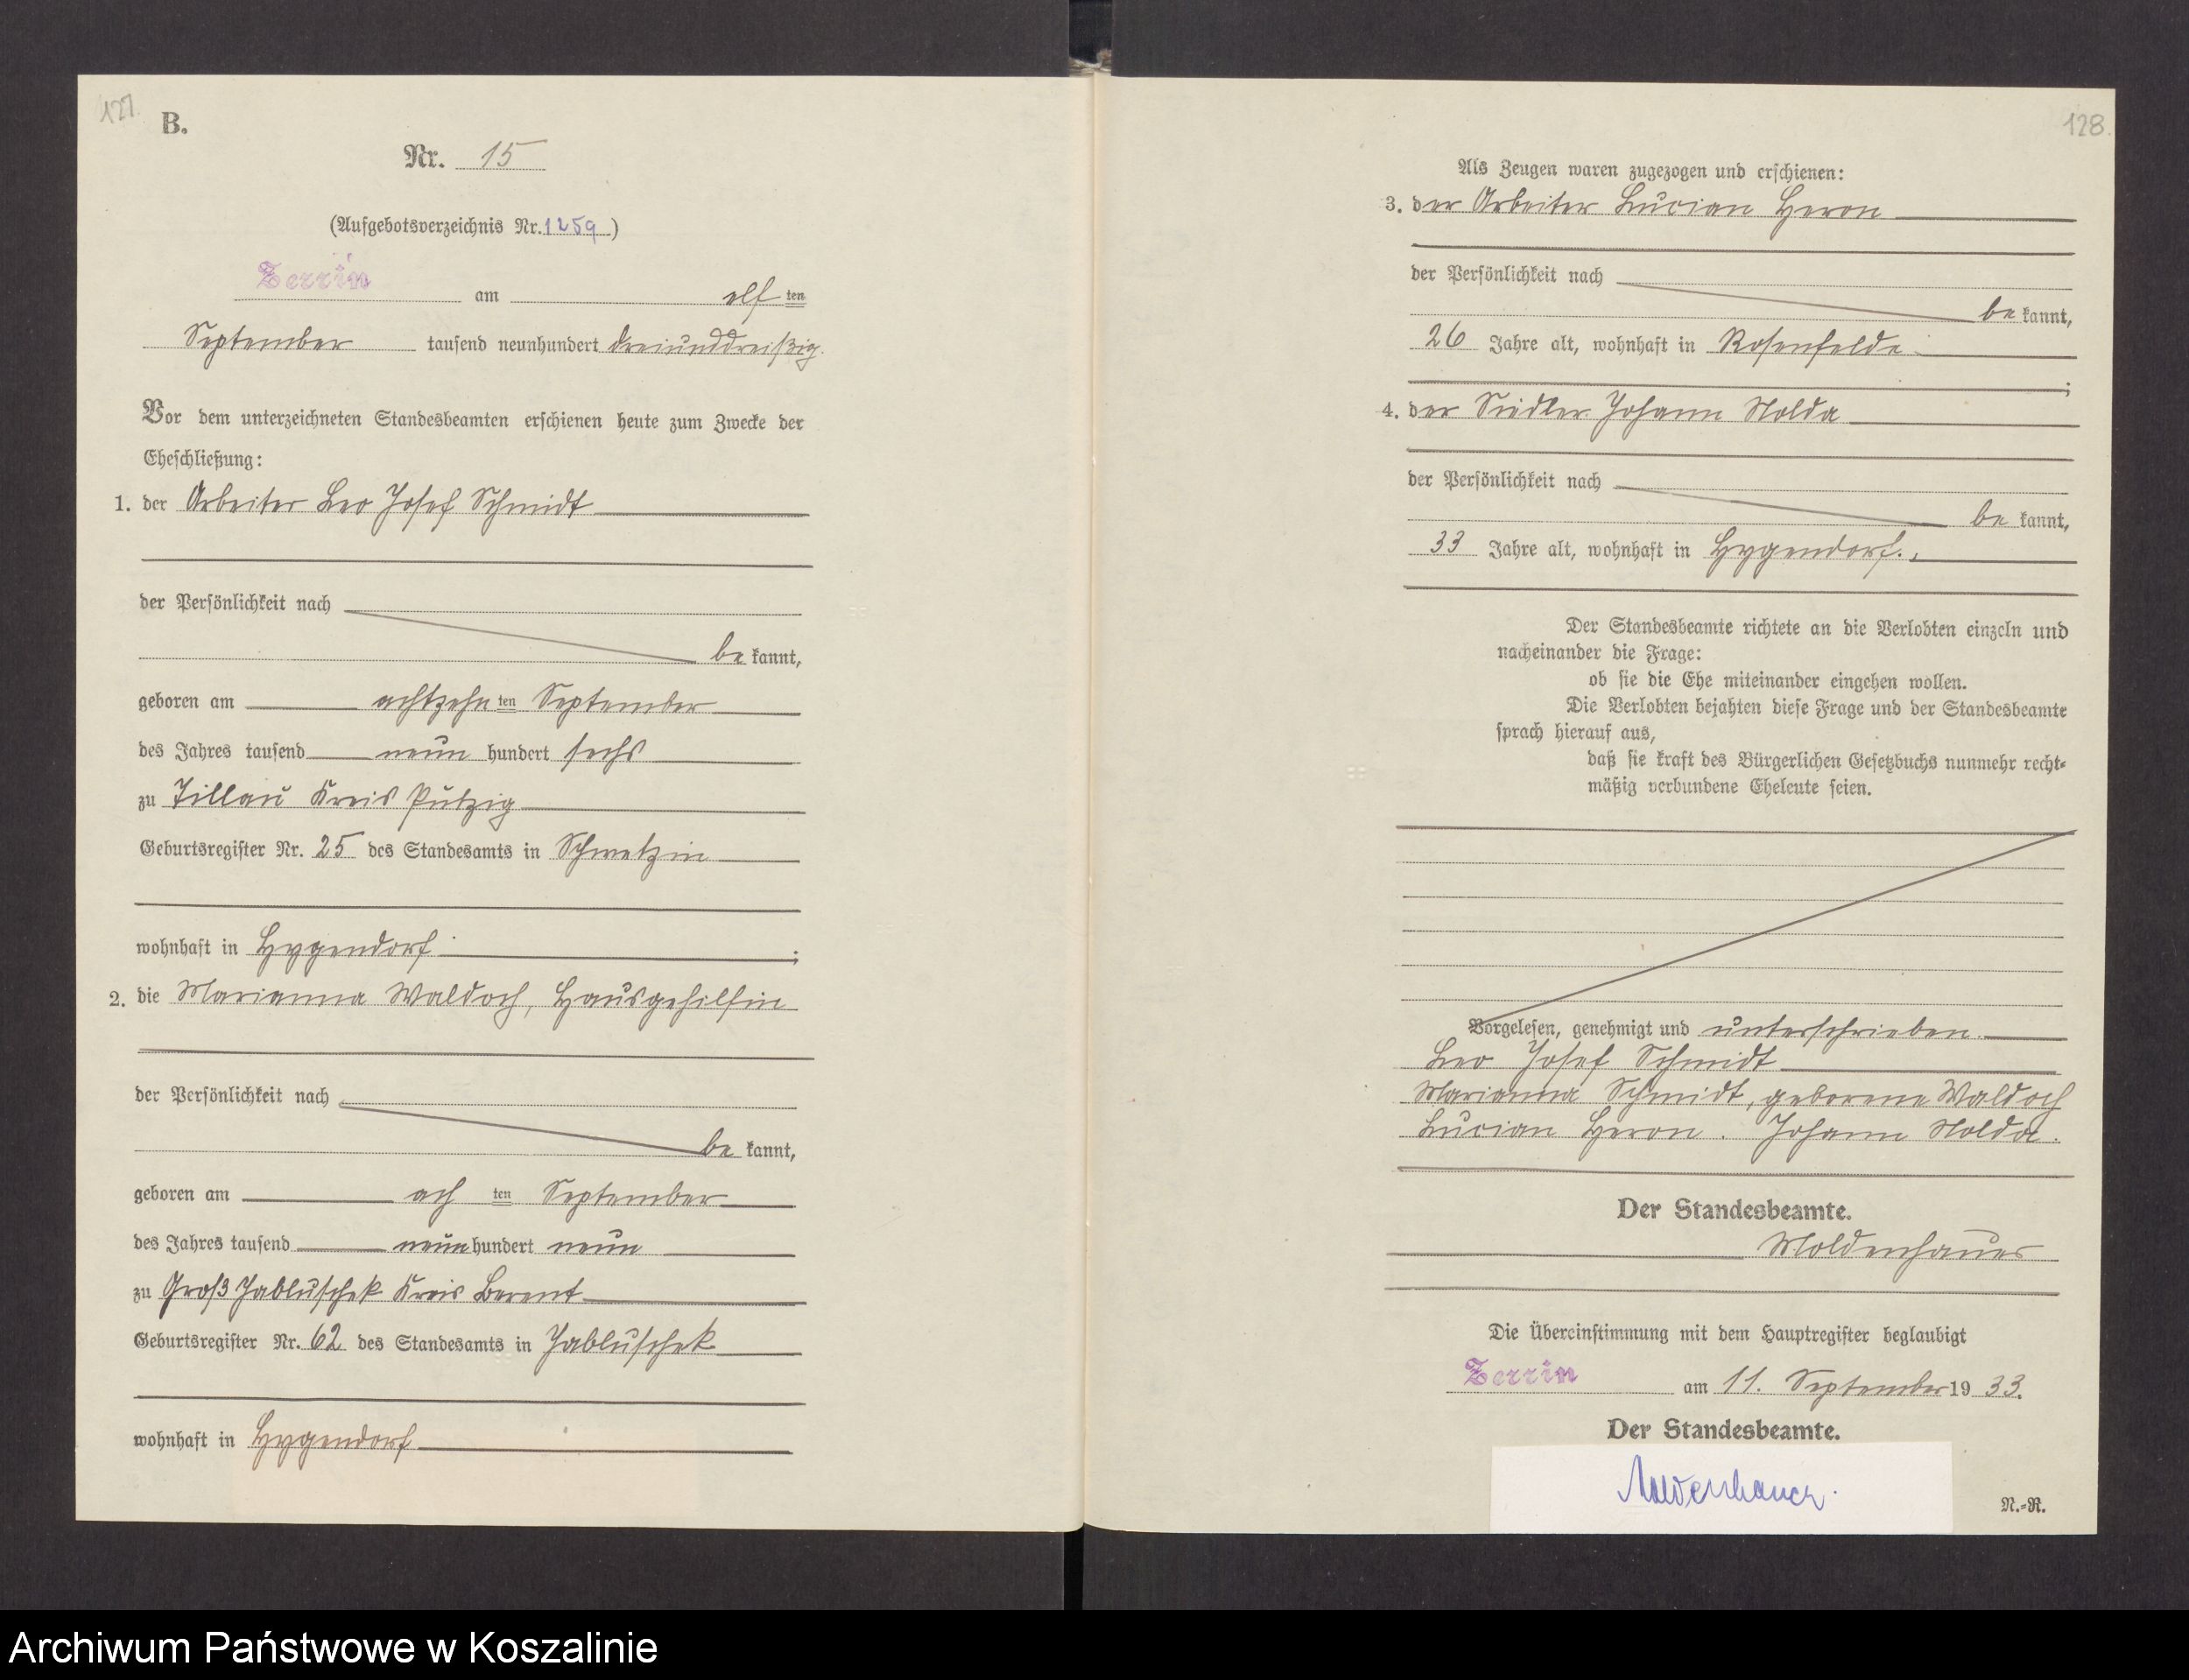 127.
B.
Nr. 15
(Aufgebotsverzeichnis Nr. 1259)
Zerrin am elf ten
September tausend neunhundert dreiunddreißig.
Vor dem unterzeichneten Standesbeamten erschienen heute zum Zwecke der
Eheschließung:
1. der Arbeiter Leo Josef Schmidt
der Persönlichkeit nach
be kannt,
geboren am achtzehn ten September
des Jahres tausend neun hundert sechs
zu Tillau Kreis Putzig
Geburtsregister Nr. 25 des Standesamts in Schwetzin
wohnhaft in Hygendorf ;
2. die Marianna Waldoch, Hausgehilfin
der Persönlichkeit nach
be kannt,
geboren am ach ten September
des Jahres tausend neun hundert neun
zu Groß Jabluschek Kreis Berent
Geburtsregister Nr. 62 des Standesamts in Jabluschek
wohnhaft in Hygendorf
128.
Als Zeugen waren zugezogen und erschienen:
3. der Arbeiter Lucian Heron
der Persönlichkeit nach
be kannt,
26 Jahre alt, wohnhaft in Rosenfelde
;
4. der Siedler Johann Nolda
der Persönlichkeit nach
be kannt,
33 Jahre alt, wohnhaft in Hygendorf.
Der Standesbeamte richtete an die Verlobten einzeln und
nacheinander die Frage:
ob sie die Ehe miteinander eingehen wollen.
Die Verlobten bejahten diese Frage und der Standesbeamte
sprach hierauf aus,
daß sie kraft des Bürgerlichen Gesetzbuchs nunmehr recht-
mäßig verbundene Eheleute seien.
Vorgelesen, genehmigt und unterschrieben.
Leo Josef Schmidt
Marianna Schmidt, geborene Waldoch
Lucian Heron. Johann Nolda.
Der Standesbeamte.
Moldenhauer
Die Übereinstimmung mit dem Hauptregister beglaubigt
Zerrin am 11. September 19 33.
Der Standesbeamte.
Moldenhauer.
N.-R.
Archiwum Państwowe w Koszalinie